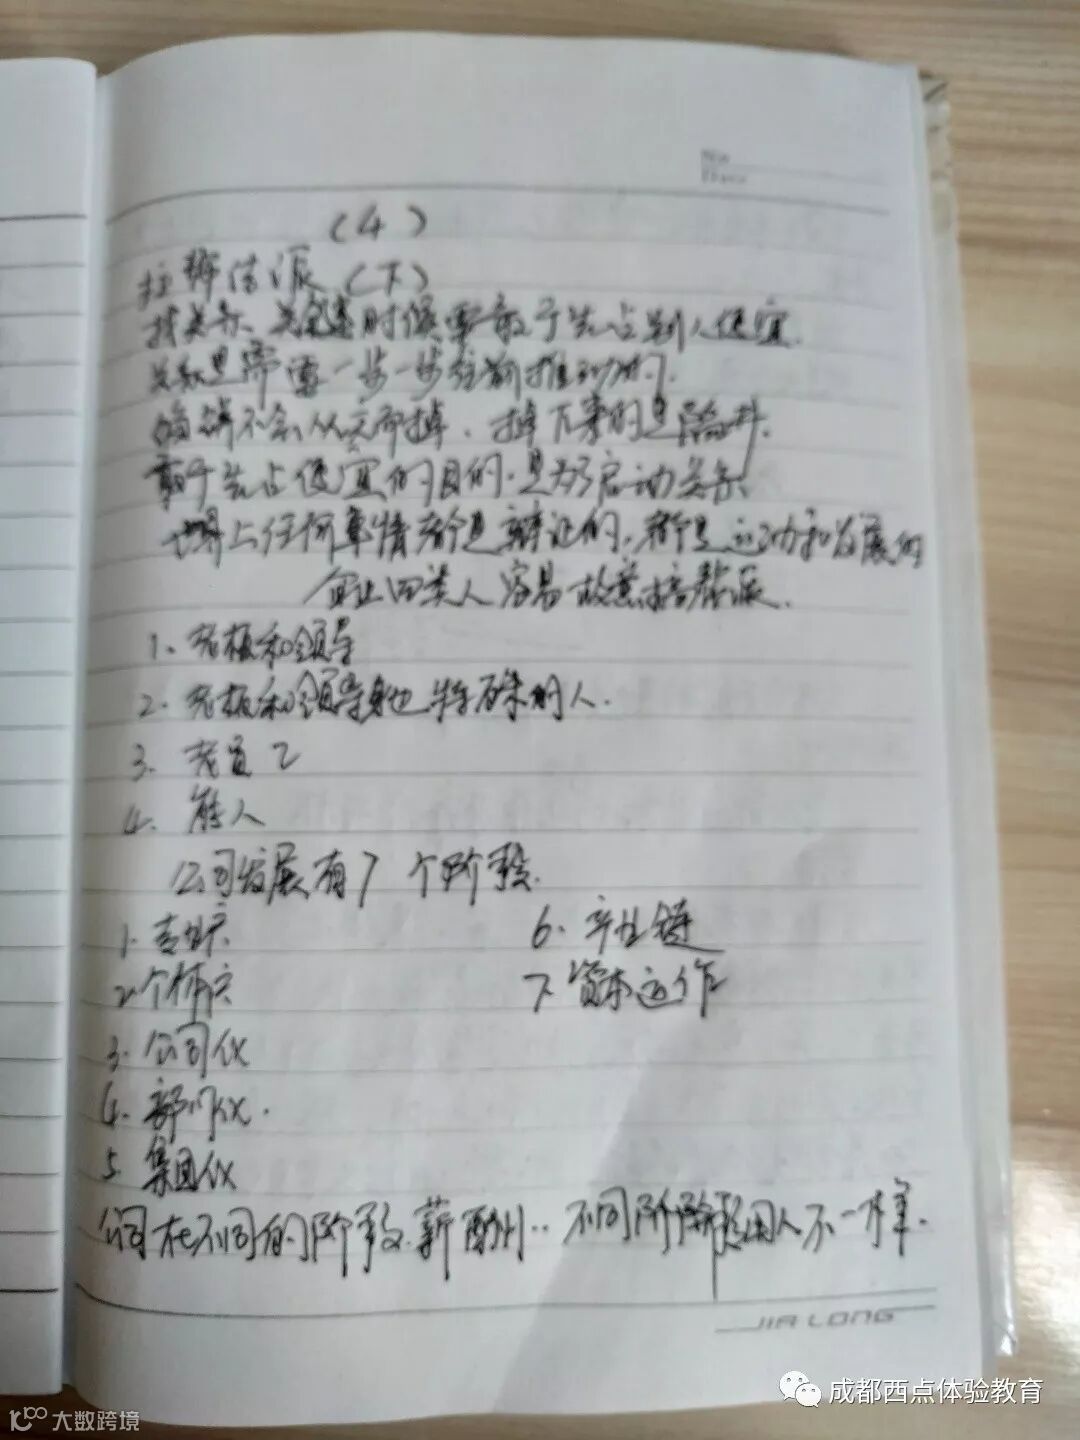 No
Date
(4)
拉帮结派(下)
找关系、关键时候要敢于先占别人便宜.
关系是需要一步一步往前推动的.
馅饼不会从天而掉、掉下来的是陷井.
敢于先占便宜的目的.是为了启动关系、
世界上任何事情都是辩证的,都是运动和发展的
企业四类人容易故意搞帮派.
1、老板和领导
2、老板和领导身边特殊的人.
3. 老员工
4. 能人
公司发展有7个阶段.
1. 专业户
2. 个体户
3. 公司化
4. 部门化.
5. 集团化
6. 产业链
7. 资本运作
公司在不同的阶段.薪酬.. 不同阶段用人不一样.
JIA LONG
成都西点体验教育
大数跨境